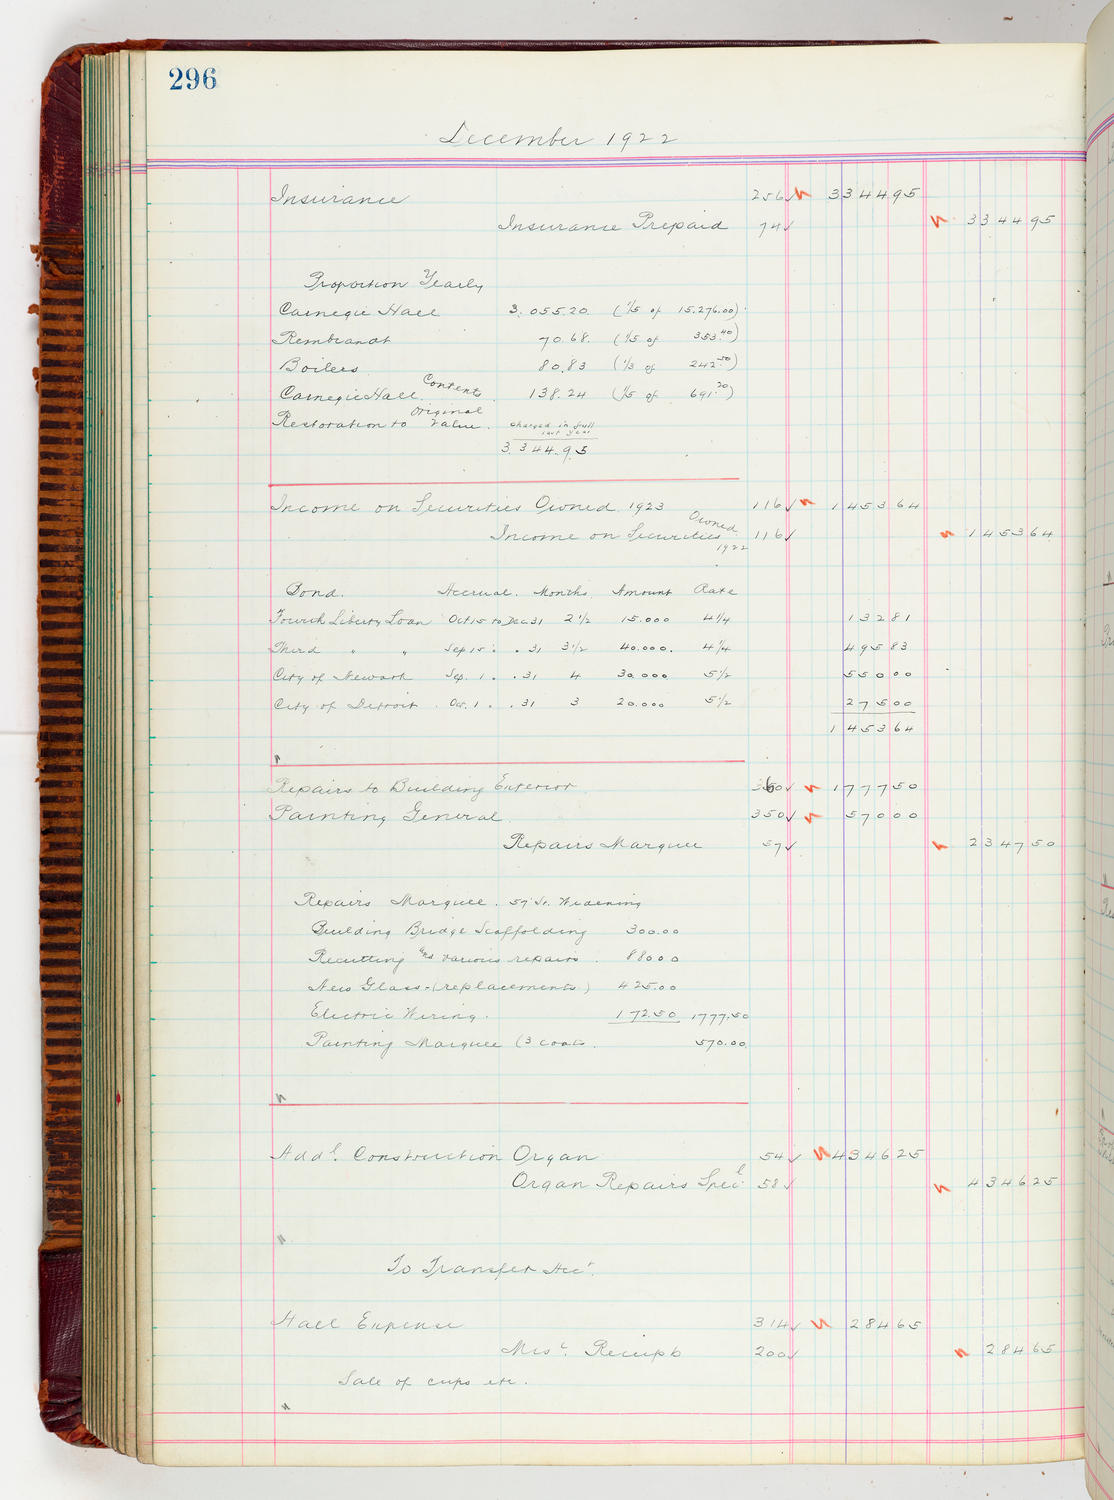 296
December 1922
Insurance 256 3344 95
Insurance Prepaid 74 3344 95
Proportion Yearly
Carnegie Hall 3,055.20 (1/5 of 15,276.00)
Rembrandt 70.68 (1/5 of 353.40)
Boilers 80.83 (1/3 of 242.50)
Carnegie Hall Contents 138.24 (1/5 of 691.20)
Restoration to Original Value. charged in full last year
3,344.95
Income on Securities Owned 1923 116 1453 64
Income on Securities Owned 1922 116 1453 64
Bond. Accrual. Months. Amount Rate
Fourth Liberty Loan Oct 15 to Dec 31 2 1/2 15.000 4 1/4 132 81
Third " " Sep 15 " " 31 3 1/2 40.000. 4 1/4 495 83
City of Newark Sep. 1 " " 31 4 30.000 5 1/2 550 00
City of Detroit Oct. 1 " " 31 3 20.000 5 1/2 275 00
1453 64
Repairs to Building Exterior 360 1777 50
Painting General 350 570 00
Repairs Marquee 57 2347 50
Repairs Marquee. 57 St. Widening
Building Bridge Scaffolding 300.00
Recutting and various repairs. 880 00
New Glass - (replacements) 425.00
Electric Wiring. 172.50 1777.50
Painting Marquee (3 coats. 570.00
Addl. Construction Organ 54 4346 25
Organ Repairs Specl 58 4346 25
To Transfer Acct.
Hall Expense 314 284 65
Misc. Receipts 200 284 65
Sale of cups etc.